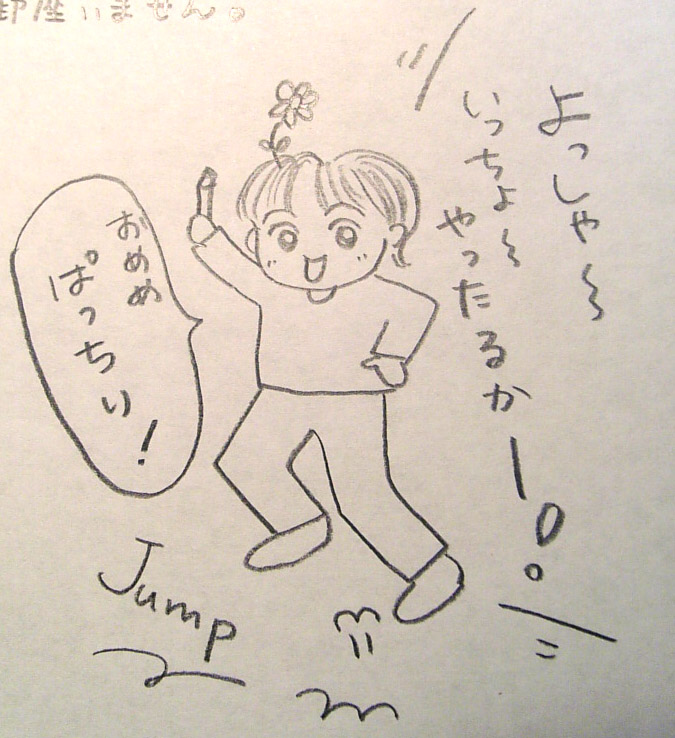 御座いません。
よっしゃ〜
いっちょ〜
やったるかー!
おめめ
ぱっちり!
Jump